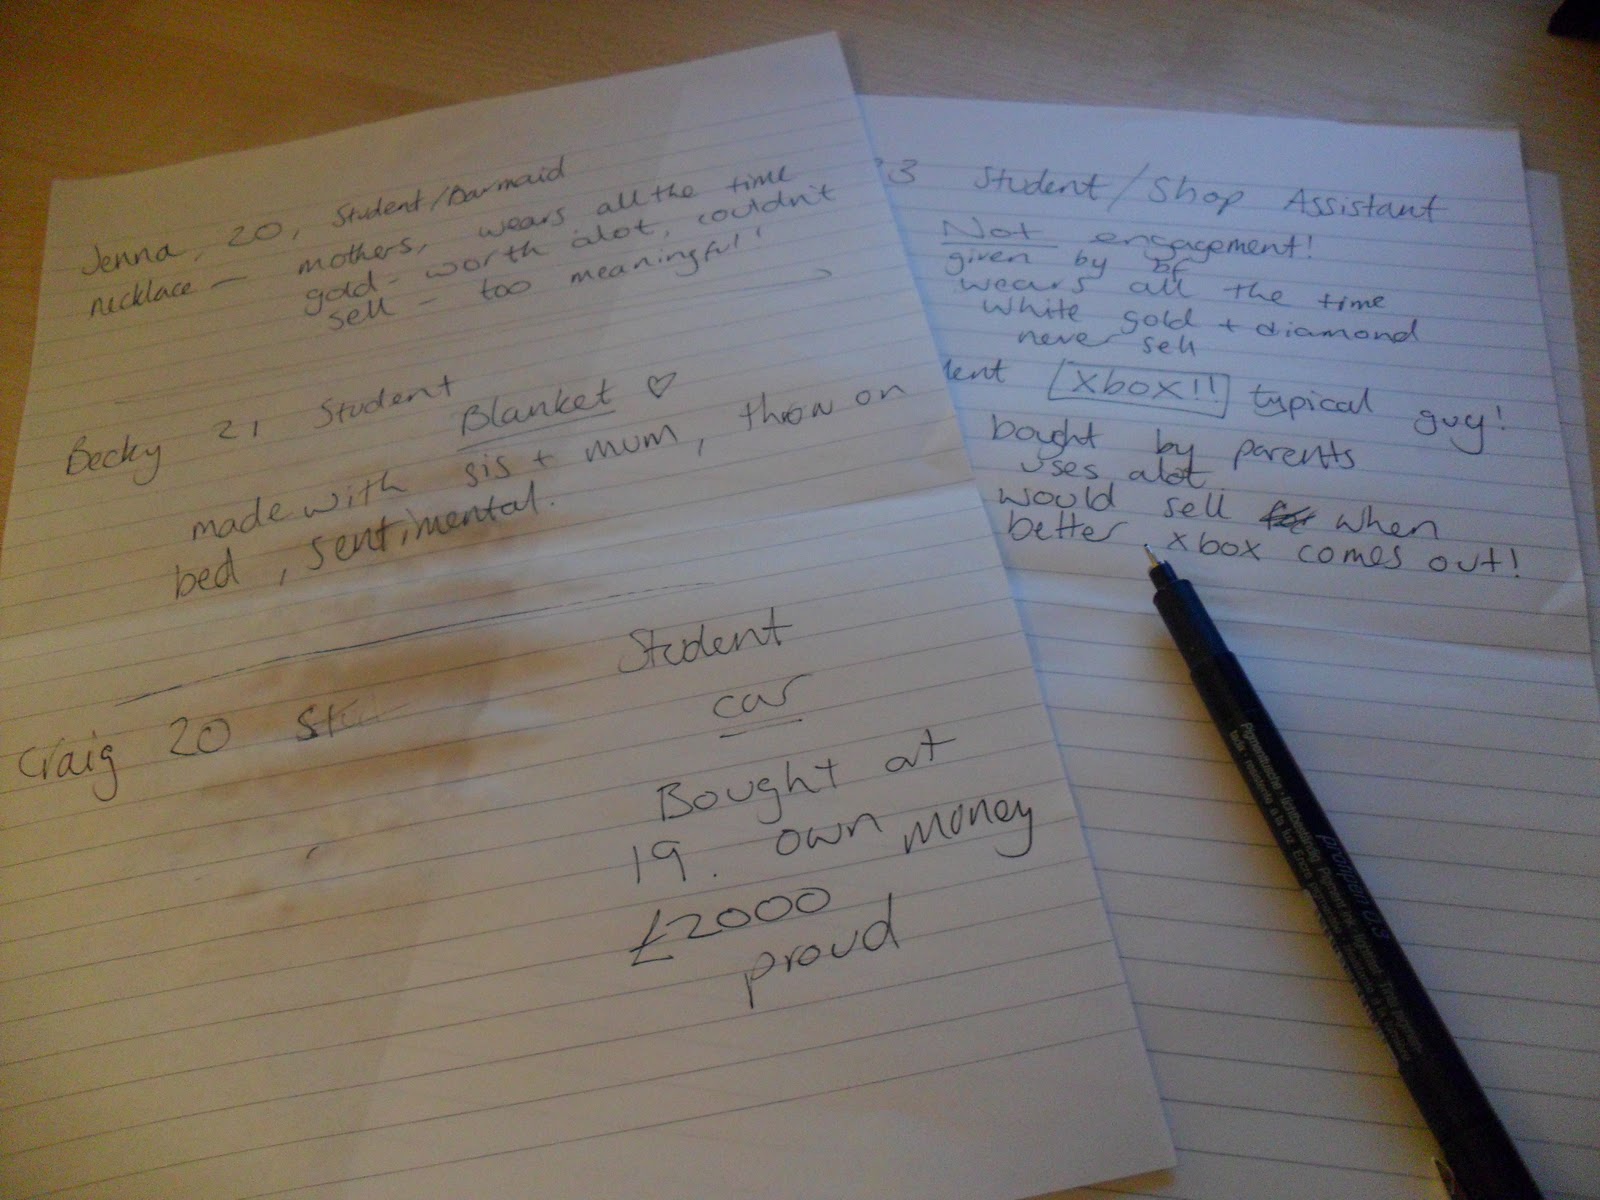 Jenna, 20, Student/Barmaid
necklace - mothers, wears all the time
gold - worth alot, couldn't
sell - too meaningful!
Becky 21 Student
Blanket ♡
made with sis + mum, throw on
bed, sentimental.
Craig 20 Stu
Student
car
Bought at
19. own money
£2000
proud
3 Student/Shop Assistant
Not engagement!
given by bf
wears all the time
white gold + diamond
never sell
dent Xbox!! typical guy!
bought by parents
uses alot
would sell when
better xbox comes out!
propen 0.3